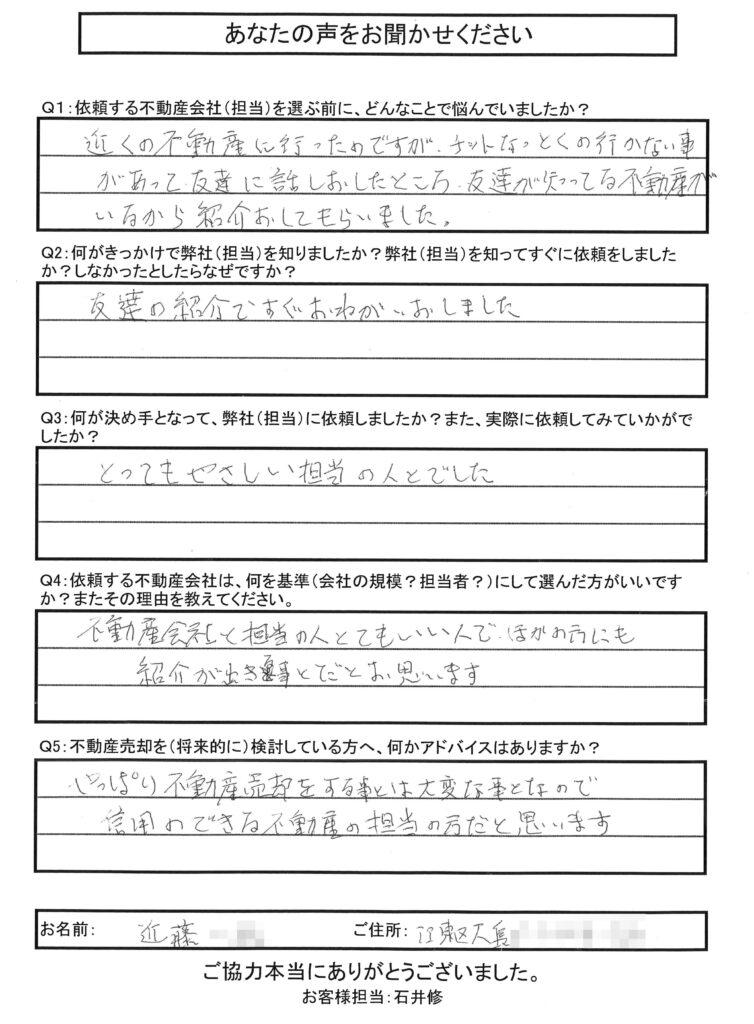 あなたの声をお聞かせください
Q1：依頼する不動産会社（担当）を選ぶ前に、どんなことで悩んでいましたか？
近くの不動産に行ったのですが、チットなっとくの行かない事
があって友達に話しおしたところ、友達が知ってる不動産が
いるから紹介おしてもらいました。
Q2：何がきっかけで弊社（担当）を知りましたか？弊社（担当）を知ってすぐに依頼をしました
か？しなかったとしたらなぜですか？
友達の紹介ですぐおねがいおしました
Q3：何が決め手となって、弊社（担当）に依頼しましたか？また、実際に依頼してみていかがで
したか？
とってもやさしい担当の人とでした
Q4：依頼する不動産会社は、何を基準（会社の規模？担当者？）にして選んだ方がいいです
か？またその理由を教えてください。
不動産会社と担当の人とてもいい人で、ほかの方にも
紹介が出き事とだとお思います
Q5：不動産売却を（将来的に）検討している方へ、何かアドバイスはありますか？
やっぱり不動産売却をする事とは大変な事となので
信用のできる不動産の担当の方だと思います
お名前： 近藤 ご住所： 江東区大島
ご協力本当にありがとうございました。
お客様担当：石井修